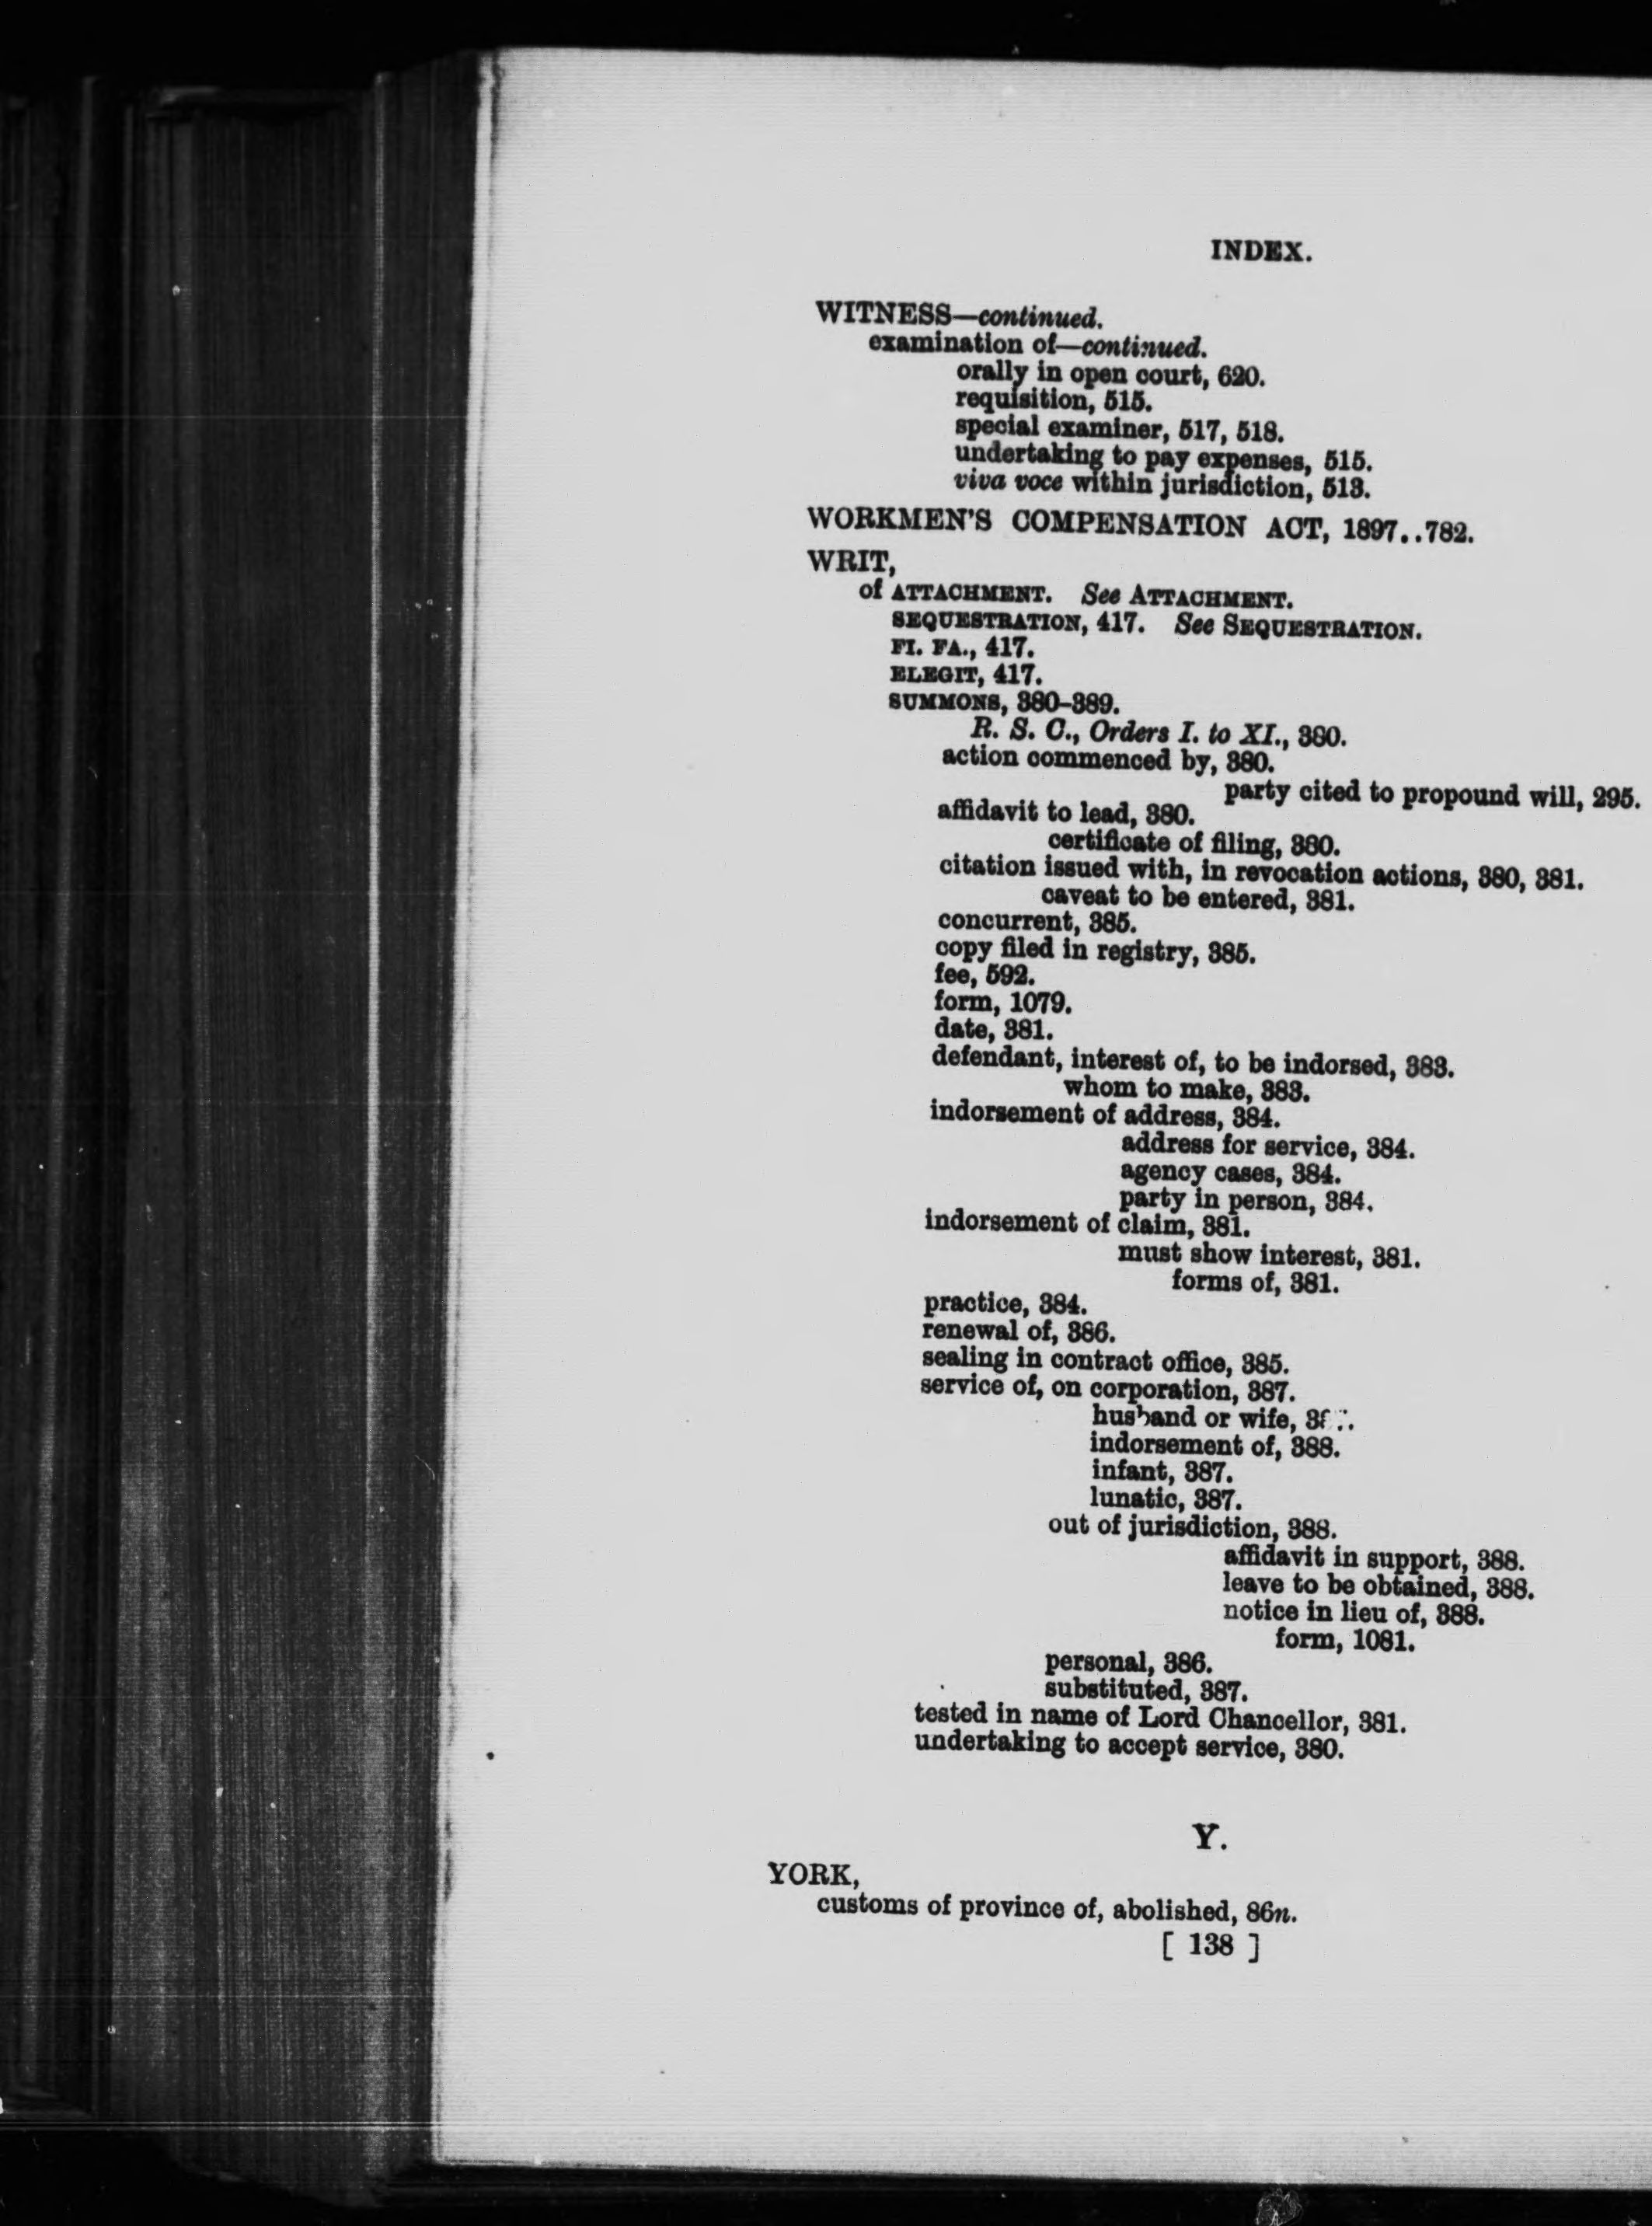 INDEX.
WITNESS—continued.
examination of—continued.
orally in open court, 620.
requisition, 515.
special examiner, 517, 518.
undertaking to pay expenses, 515.
viva voce within jurisdiction, 513.
WORKMEN'S COMPENSATION ACT, 1897..782.
WRIT,
of ATTACHMENT. See ATTACHMENT.
SEQUESTRATION, 417. See SEQUESTRATION.
FI. FA., 417.
ELEGIT, 417.
SUMMONS, 380–389.
R. S. C., Orders I. to XI., 380.
action commenced by, 380.
party cited to propound will, 295.
affidavit to lead, 380.
certificate of filing, 380.
citation issued with, in revocation actions, 380, 381.
caveat to be entered, 381.
concurrent, 385.
copy filed in registry, 385.
fee, 592.
form, 1079.
date, 381.
defendant, interest of, to be indorsed, 383.
whom to make, 383.
indorsement of address, 384.
address for service, 384.
agency cases, 384.
party in person, 384.
indorsement of claim, 381.
must show interest, 381.
forms of, 381.
practice, 384.
renewal of, 386.
sealing in contract office, 385.
service of, on corporation, 387.
husband or wife,
indorsement of, 388.
infant, 387.
lunatic, 387.
out of jurisdiction, 388.
affidavit in support, 388.
leave to be obtained, 388.
notice in lieu of, 388.
form, 1081.
personal, 386.
substituted, 387.
tested in name of Lord Chancellor, 381.
undertaking to accept service, 380.
Y.
YORK,
customs of province of, abolished, 86n.
[ 138 ]